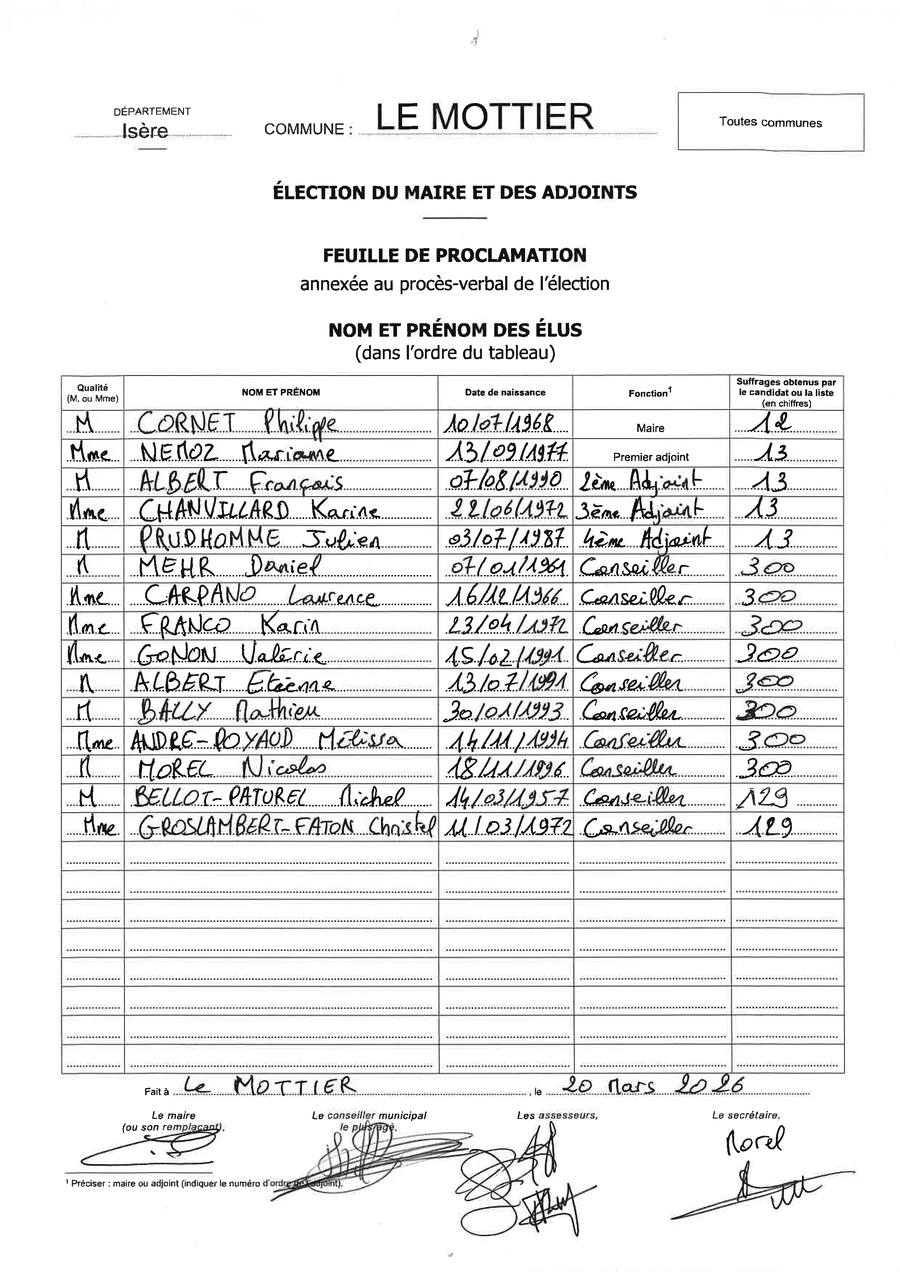 DÉPARTEMENT
Isère
COMMUNE : LE MOTTIER
Toutes communes
ÉLECTION DU MAIRE ET DES ADJOINTS
FEUILLE DE PROCLAMATION
annexée au procès-verbal de l'élection
NOM ET PRÉNOM DES ÉLUS
(dans l'ordre du tableau)
Qualité (M. ou Mme) NOM ET PRÉNOM Date de naissance Fonction¹ Suffrages obtenus par le candidat ou la liste (en chiffres)
M CORNET Philippe 10/07/1968 Maire 12
Mme NEMOZ Mariame 13/09/1977 Premier adjoint 13
M ALBERT François 07/08/1990 2ème Adjoint 13
Mme CHANVILLARD Karine 22/06/1972 3ème Adjoint 13
M PRUDHOMME Julien 03/07/1987 4ème Adjoint 13
M MEHR Daniel 07/01/1961 Conseiller 300
Mme CARPANO Laurence 16/12/1966 Conseiller 300
Mme FRANCO Karin 23/04/1972 Conseiller 300
Mme GONON Valérie 15/02/1991 Conseiller 300
M ALBERT Etienne 13/07/1991 Conseiller 300
M BALLY Mathieu 30/01/1993 Conseiller 300
Mme ANDRE-POYAUD Mélissa 14/11/1994 Conseiller 300
M MOREL Nicolas 18/11/1996 Conseiller 300
M BELLOT-PATUREL Michel 14/03/1957 Conseiller 129
Mme GROSLAMBERT-FATON Christel 11/03/1972 Conseiller 129
Fait à Le MOTTIER, le 20 Mars 2026
Le maire (ou son remplaçant), Le conseiller municipal le plus âgé, Les assesseurs, Le secrétaire,
Morel
¹ Préciser : maire ou adjoint (indiquer le numéro d'ordre de l'adjoint).